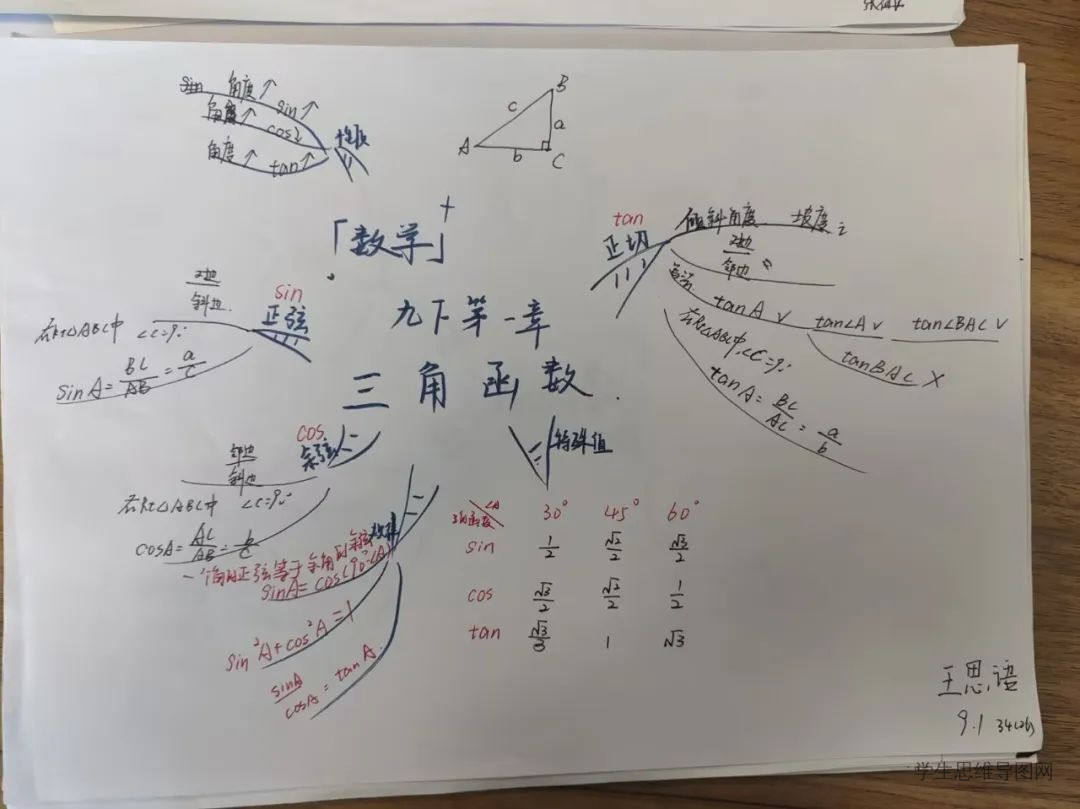 sin 角度↑ sin↑
角度↑ cos↓
角度↑ tan↑
性质
A B C
a b c
「数学」
九下第一章
三角函数
sin
正弦
对边/斜边
在Rt△ABC中 ∠C=90°
sinA=BC/AB=a/c
cos
余弦
邻边/斜边
在Rt△ABC中 ∠C=90°
cosA=AC/AB=b/c
一个角的正弦等于余角的余弦
sinA=cos(90°-∠A)
sin²A+cos²A=1
sinA/cosA=tanA
特殊值
∠A
三角函数 30° 45° 60°
sin 1/2 √2/2 √3/2
cos √3/2 √2/2 1/2
tan √3/3 1 √3
tan
正切
倾斜角度 坡度i
对边/邻边
tanA ∨ tan∠A ∨ tan∠BAC ∨
tanBAC ×
在Rt△ABC中,∠C=90°
tanA=BC/AC=a/b
王思语
9.1
学生思维导图网